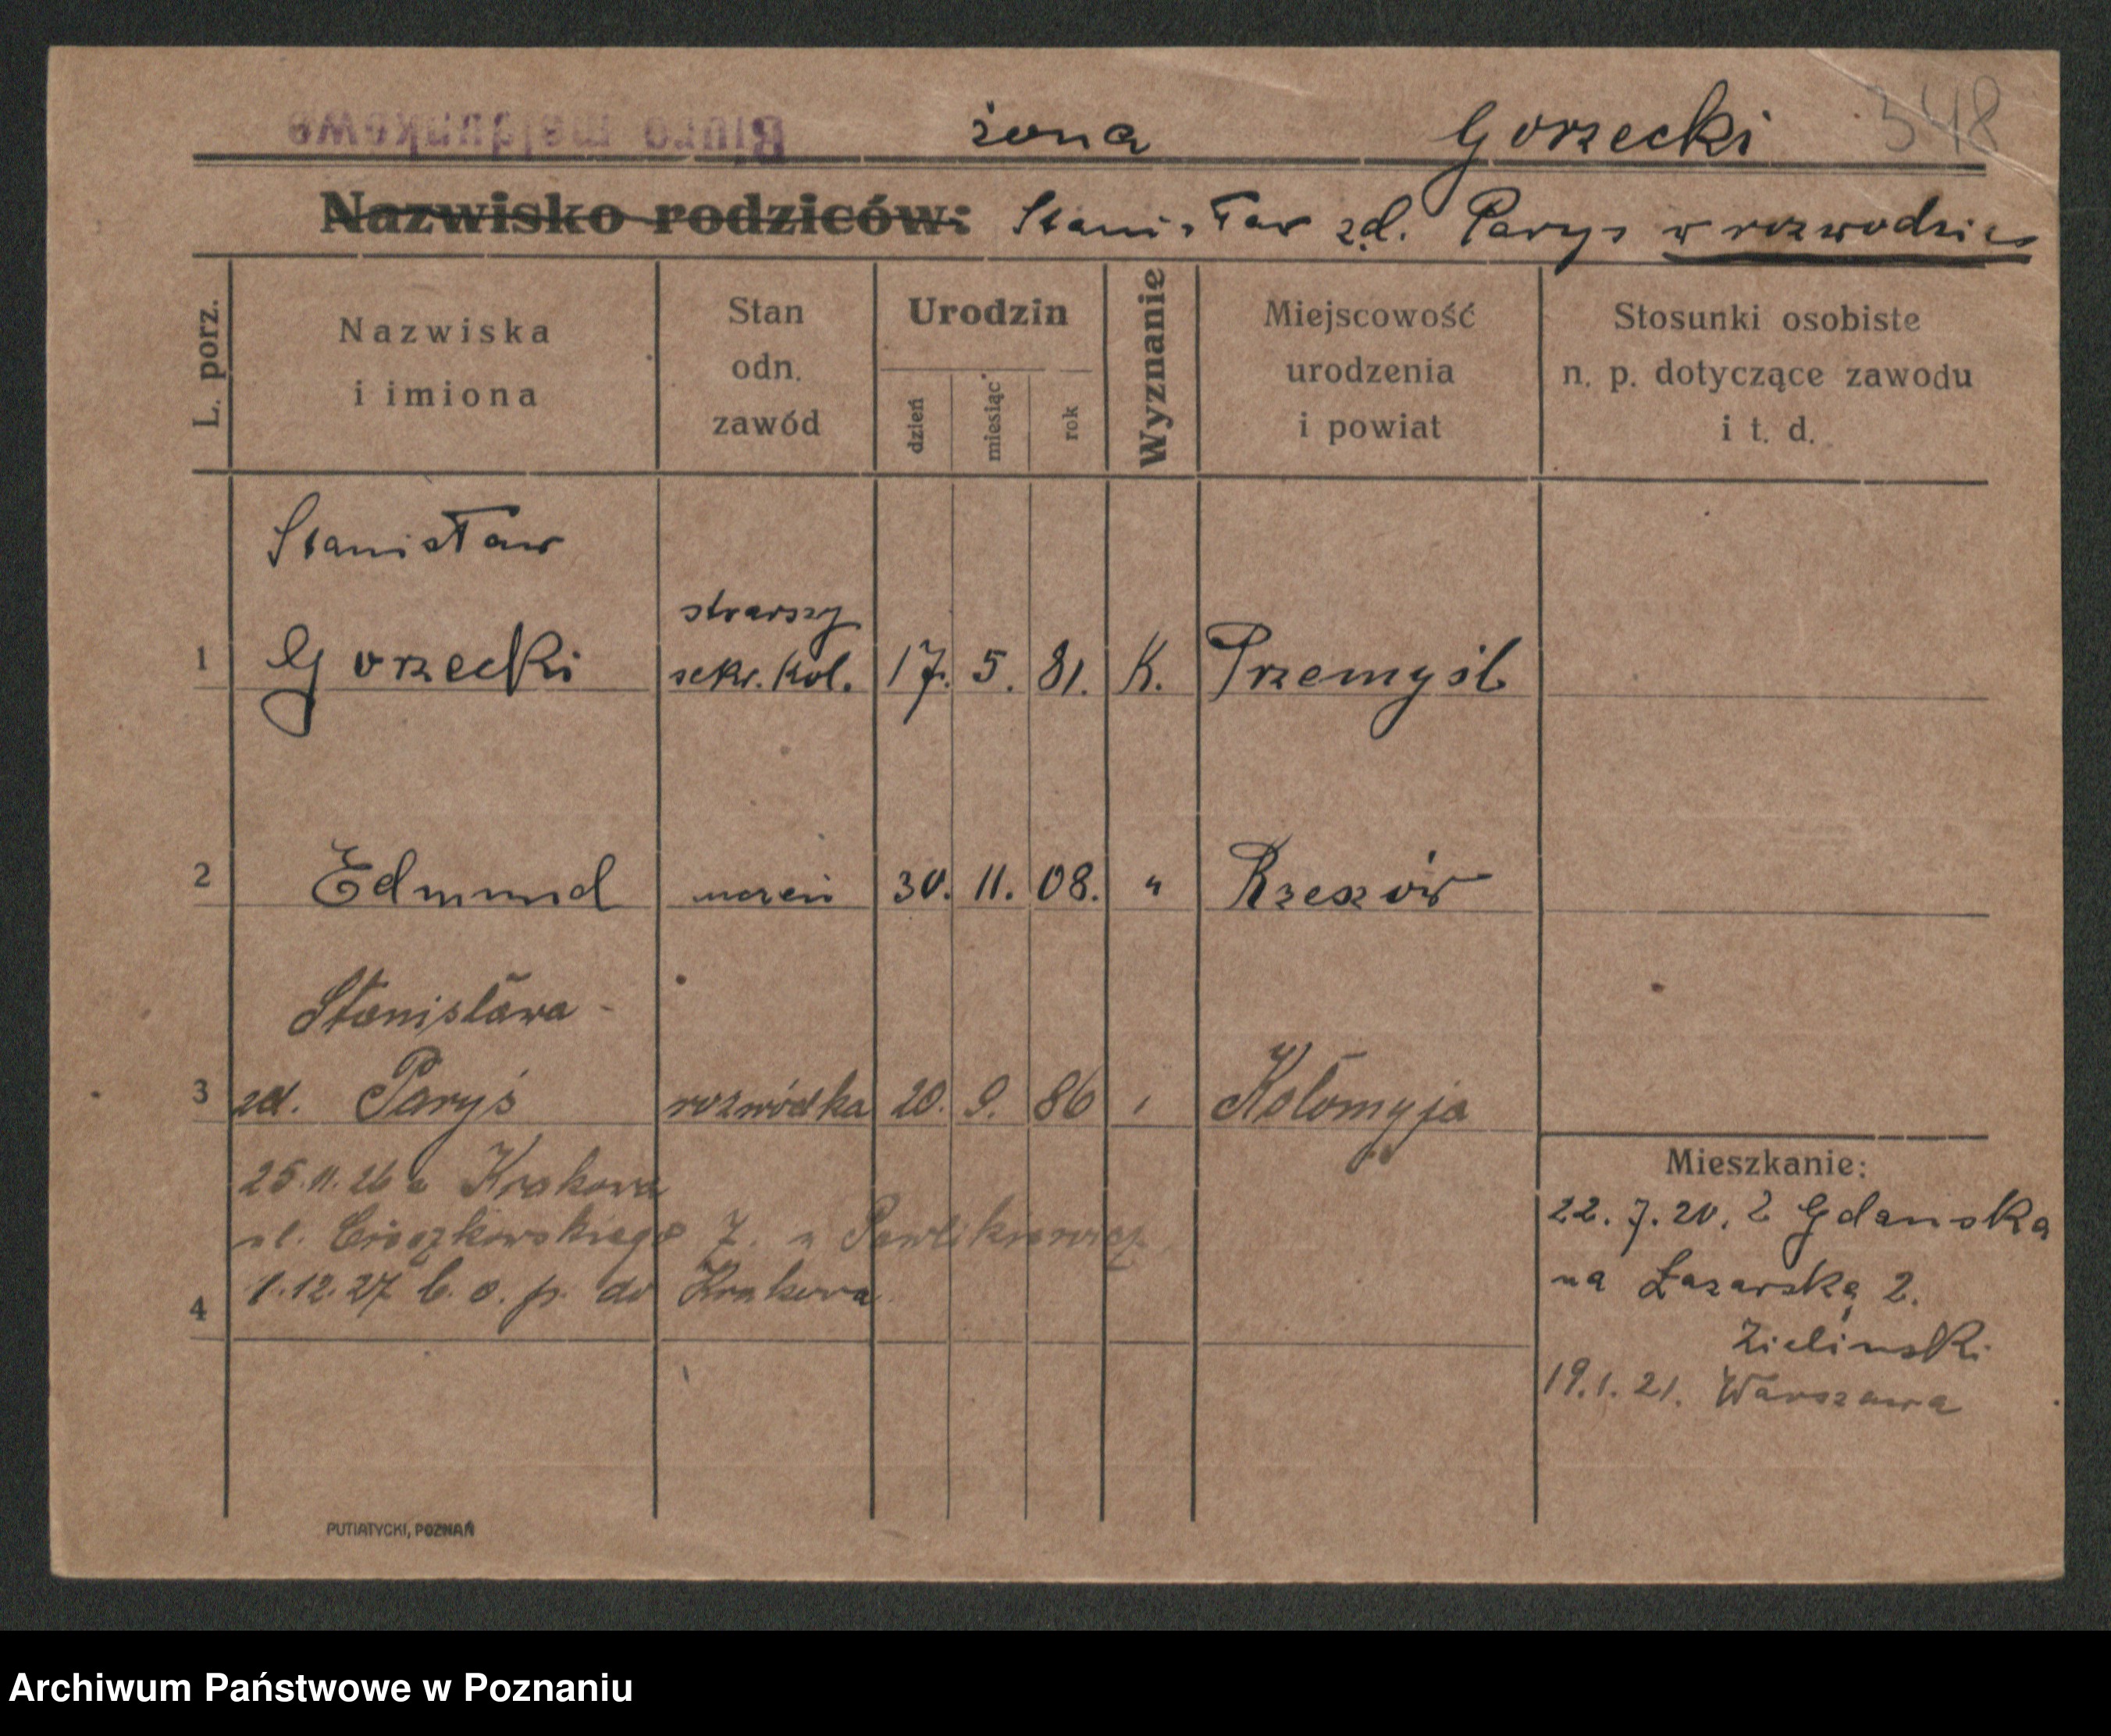 Biuro meldunkowe
żona Gorzecki 348
Nazwisko rodziców: Stanisław zd. Parys w rozwodzie
L. porz.
Nazwiska i imiona
Stan odn. zawód
Urodzin
dzień miesiąc rok
Wyznanie
Miejscowość urodzenia i powiat
Stosunki osobiste n. p. dotyczące zawodu i t. d.
Stanisław
starszy
1 Gorzecki sekr. kol. 17. 5. 81. K. Przemyśl
2 Edmund uczeń 30. 11. 08. " Rzeszów
Stanisława
3 zd. Paryś rozwódka 20. 9. 86 Kołomyja
25.11.26 z Krakowa
ul. Cieszkowskiego 7. u
1.12.27 b. o. p. do Krakowa
4
Mieszkanie:
22. 7. 20. z Gdańska
na Łazarską 2.
Zieliński
19.1.21. Warszawa
PUTIATYCKI, POZNAŃ
Archiwum Państwowe w Poznaniu